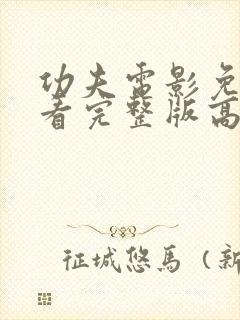 功夫雷影免
看完整版高
征城悠馬（新